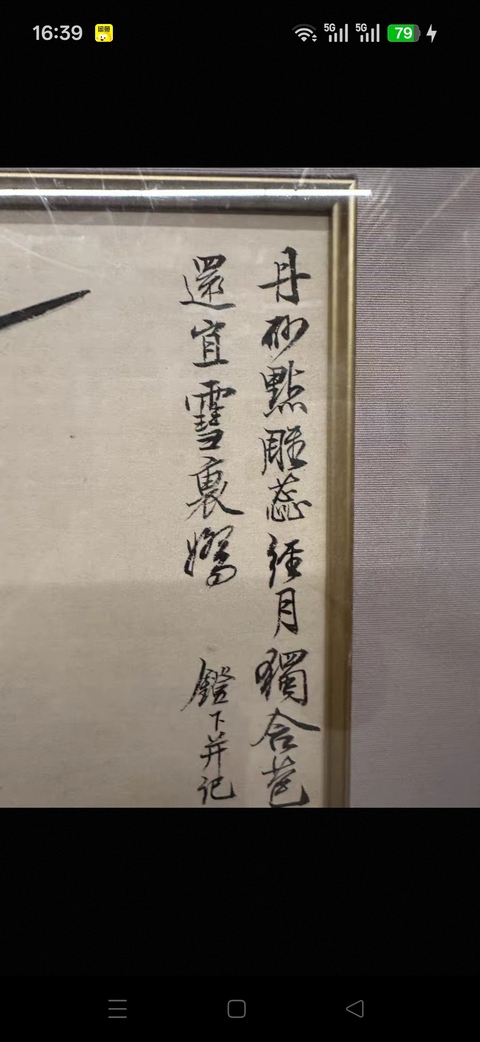 16:39
5G 5G 79
丹砂點雕蕊經月獨含苞
還宜雪裏嬌
鐙下并记